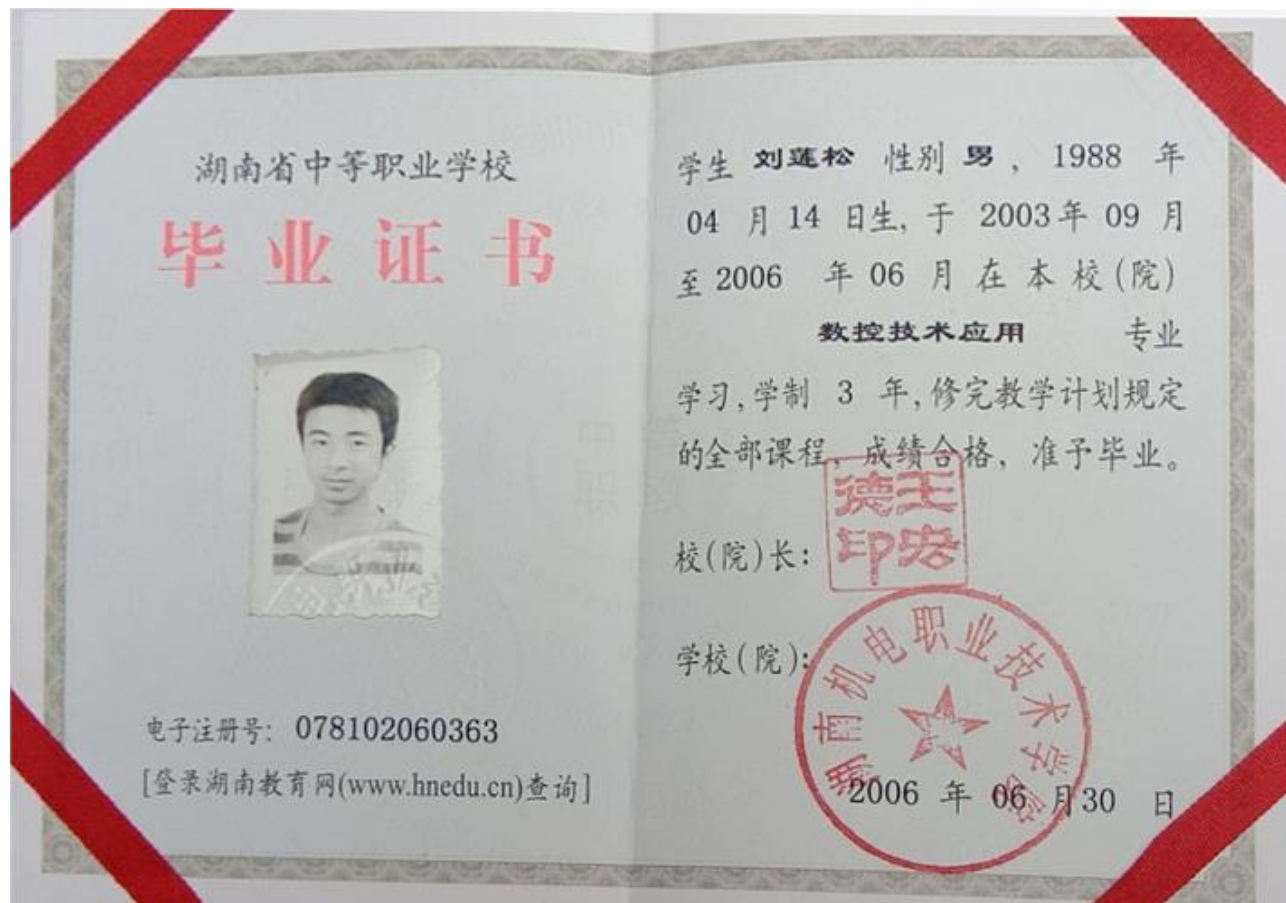 湖南省中等职业学校
毕业证书
电子注册号：078102060363
[登录湖南教育网(www.hnedu.cn)查询]
学生 刘莲松 性别 男，1988 年
04 月 14 日生，于 2003 年 09 月
至 2006 年 06 月 在 本 校(院)
数控技术应用 专业
学习，学制 3 年，修完教学计划规定
的全部课程，成绩合格，准予毕业。
校(院)长：
德王
印宏
学校(院)：
湖南机电职业技术学院
2006 年 06 月 30 日